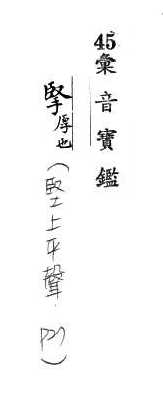 45彙音寶鑑
掔厚也
(堅上平聲 P27)